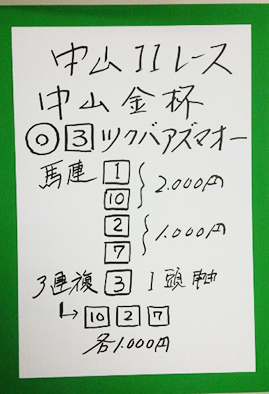 中山11レース
中山金杯
◎ 3 ツクバアズマオー
馬連 1
10 } 2.000円
2
7 } 1.000円
3連複 3 1頭軸
↳ 10 2 7
各1.000円